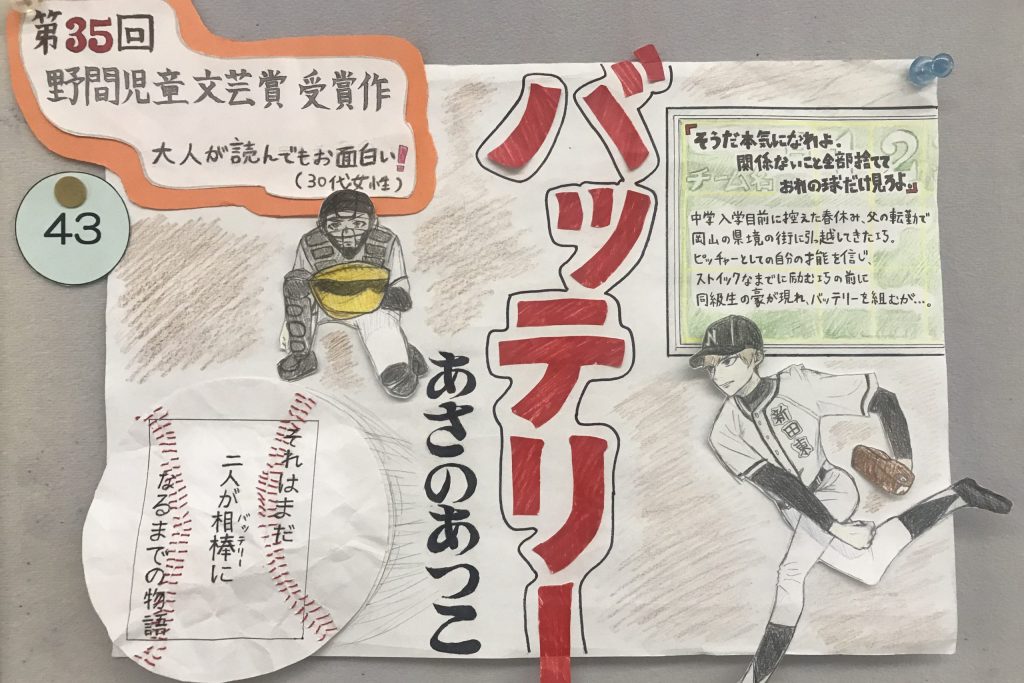 第35回
野間児童文芸賞 受賞作
大人が読んでもお面白い!
(30代女性)
43
バッテリー
あさのあつこ
『そうだ本気になれよ。
関係ないこと全部捨てて
おれの球だけ見ろよ』
チーム名 1 2
中学入学目前に控えた春休み、父の転勤で
岡山の県境の街に引っ越してきた巧。
ピッチャーとしての自分の才能を信じ、
ストイックなまでに励む巧の前に
同級生の豪が現れ、バッテリーを組むが…。
N
新田東
それはまだ
二人が相棒に
バッテリー
なるまでの物語